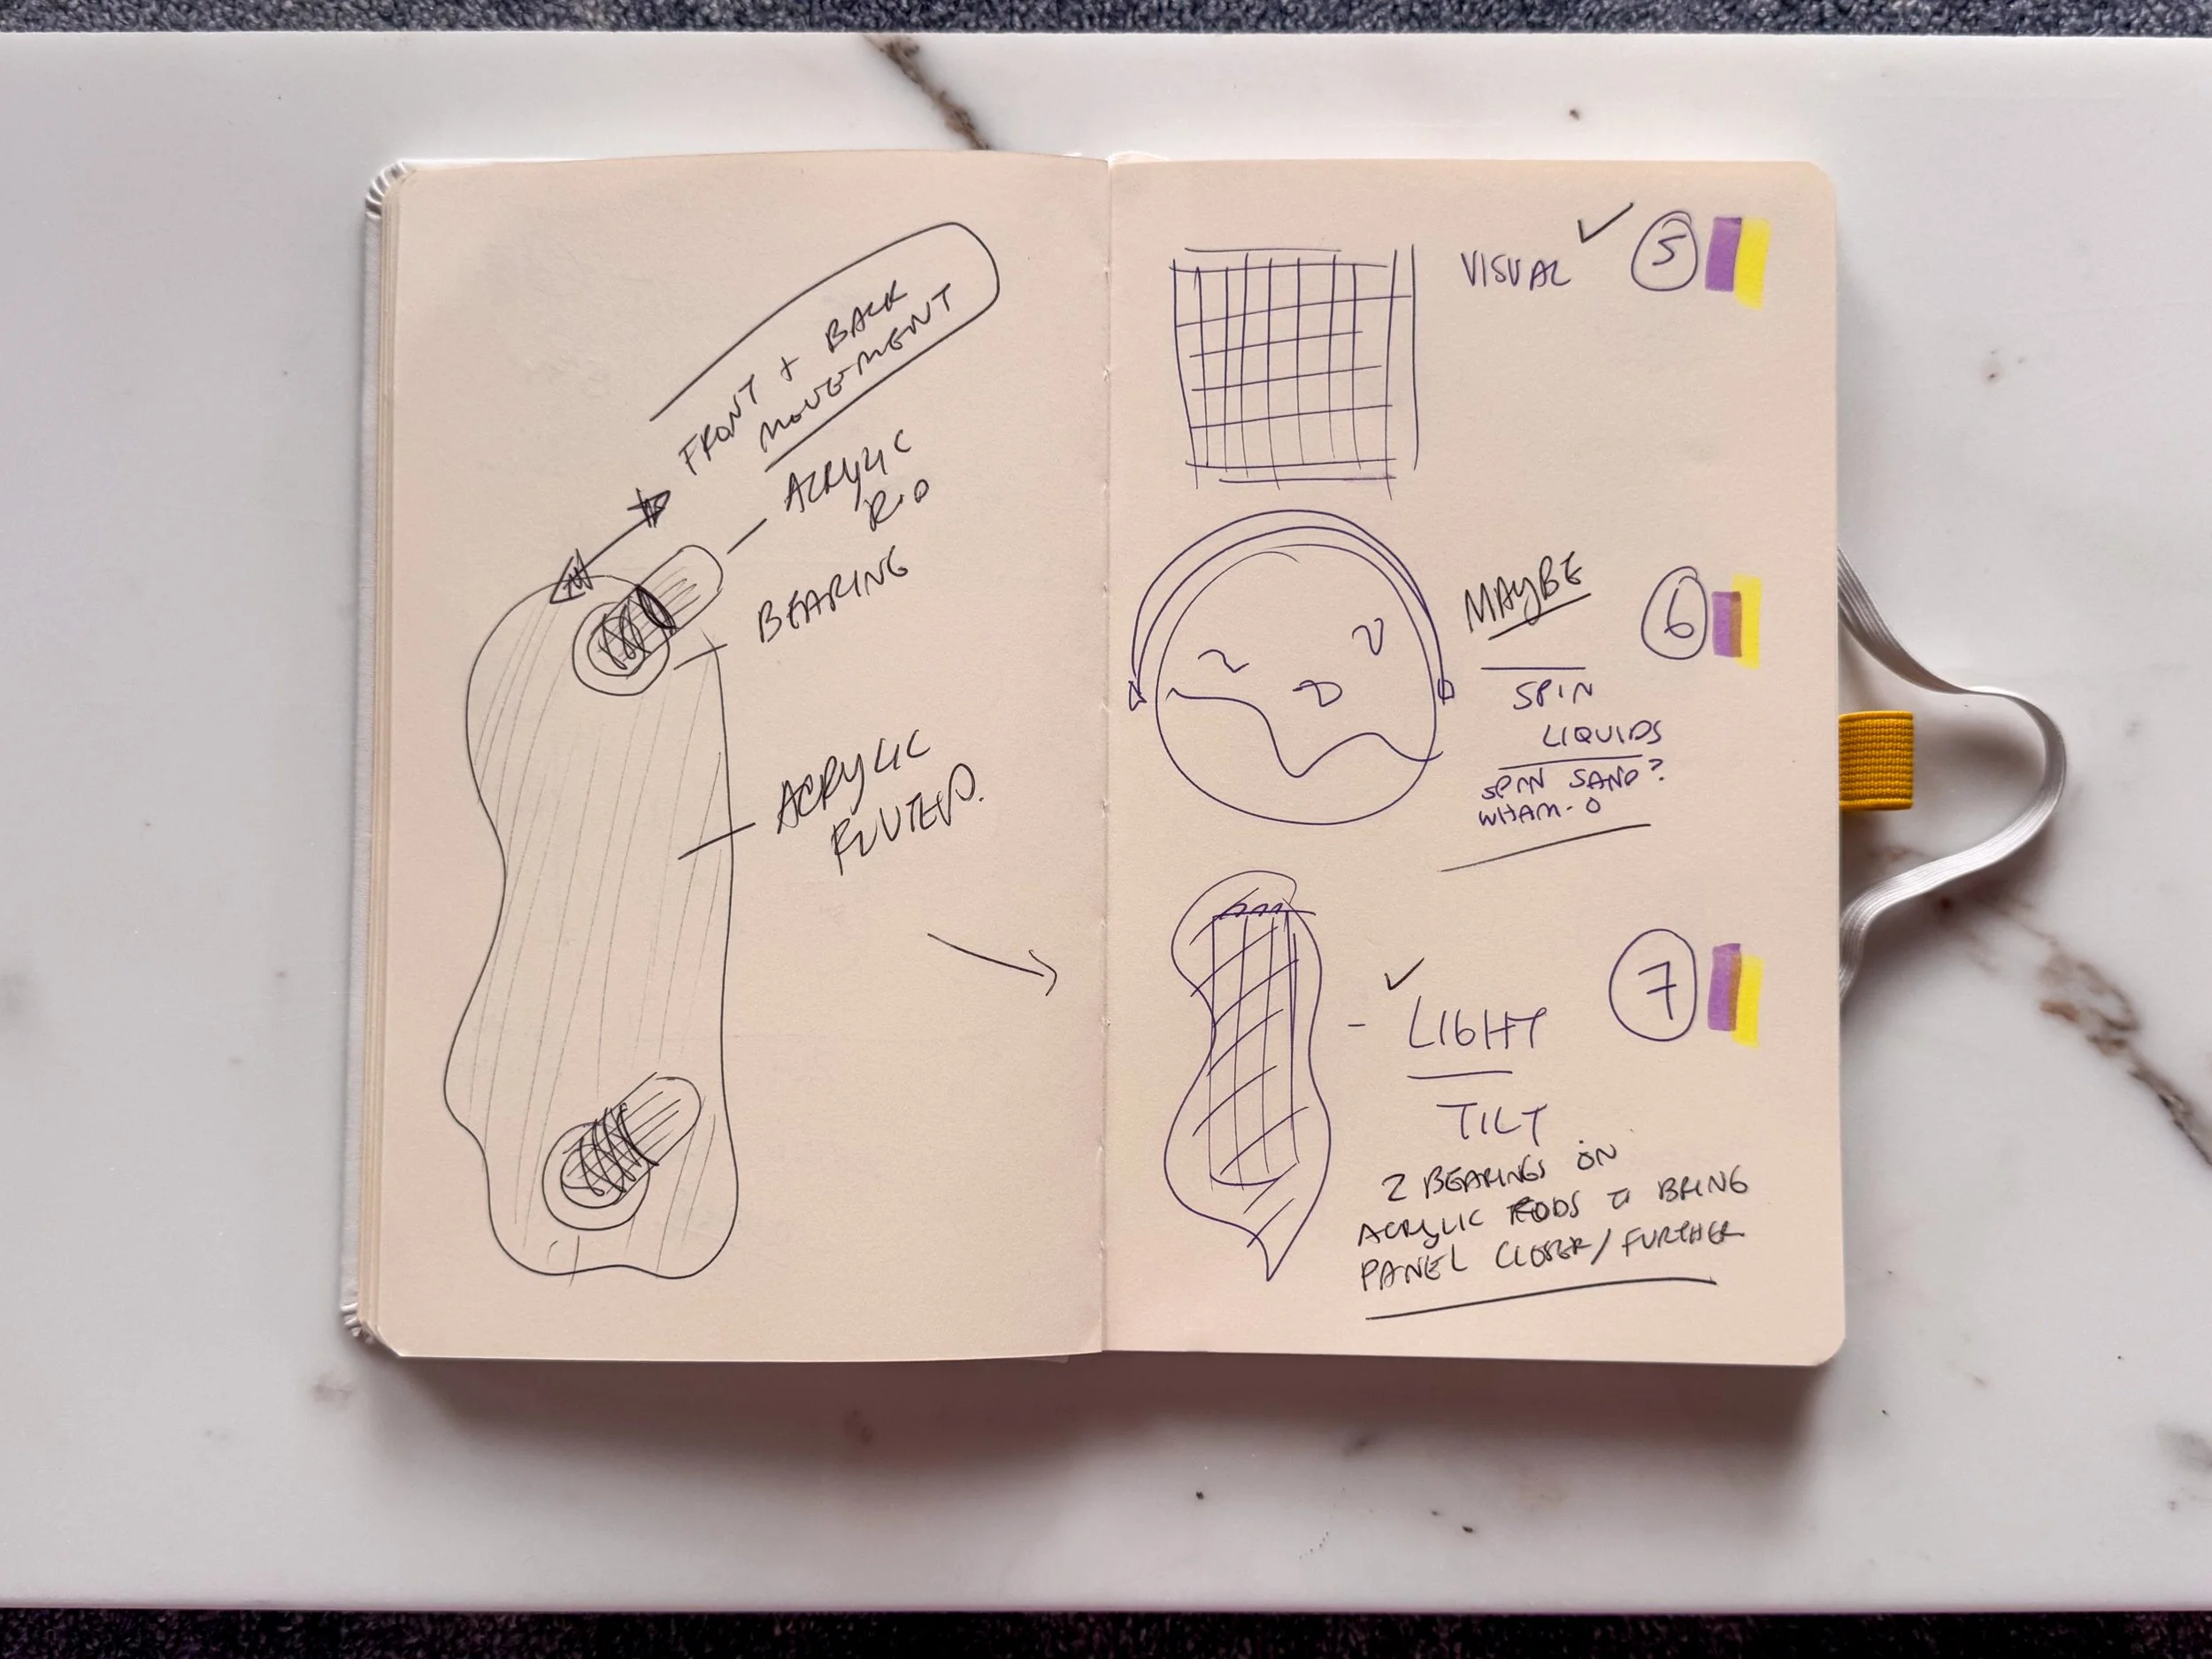 FRONT + BACK
MOVEMENT
ACRYLIC
ROD
BEARING
ACRYLIC
FLUTED.
VISUAL
5
MAYBE
6
SPIN
LIQUIDS
SPIN SAND?
WHAM-O
7
- LIGHT
TILT
2 BEARINGS ON
ACRYLIC RODS TO BRING
PANEL CLOSER/FURTHER